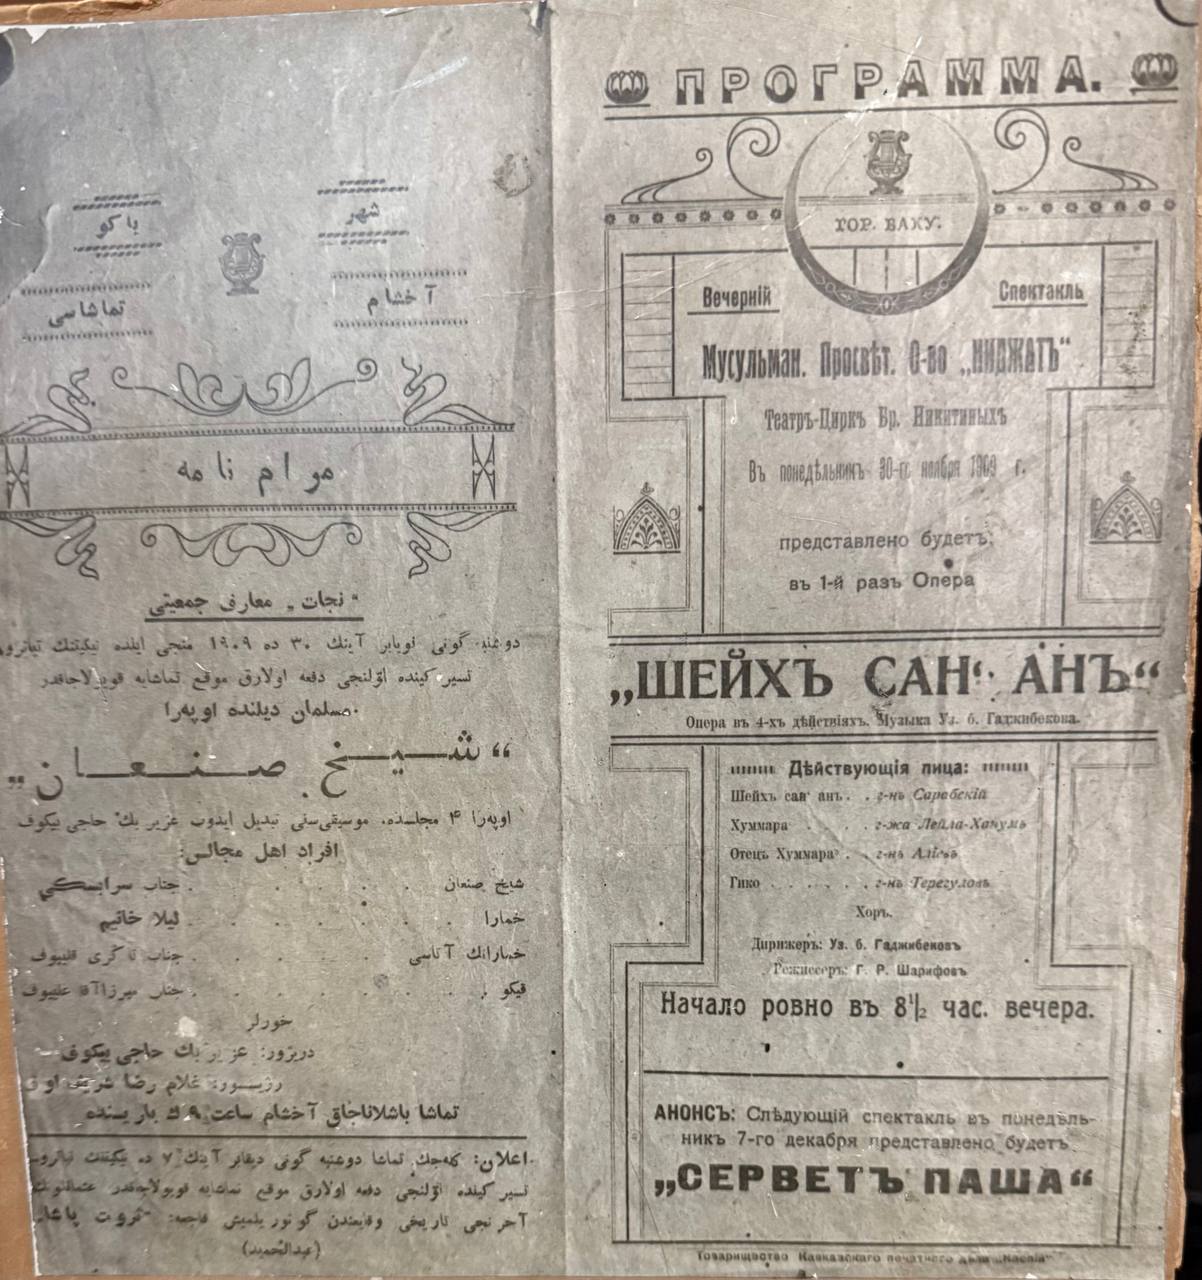 ПРОГРАММА.
ГОР. БАКУ.
Вечерній Спектакль
Мусульман. Просвѣт. О-во „НИДЖАТЪ“
Театръ-Циркъ Бр. Никитиныхъ
Въ понедѣльникъ 30-го ноября 1909 г.
представлено будетъ:
въ 1-й разъ Опера
„ШЕЙХЪ САН‘АНЪ“
Опера въ 4-хъ дѣйствіяхъ. Музыка Уз. б. Гаджибекова.
Дѣйствующія лица:
Шейхъ сан‘анъ. . г-нъ Сарабскій
Хуммара . . . . г-жа Лейла-Ханумъ
Отецъ Хуммара . . г-нъ Аліевъ
Гико . . . . . . г-нъ Терегуловъ
Хоръ.
Дирижеръ: Уз. б. Гаджибековъ
Режиссеръ: Г. Р. Шарифовъ
Начало ровно въ 8½ час. вечера.
АНОНСЪ: Слѣдующій спектакль въ понедѣль-
никъ 7-го декабря представлено будетъ
„СЕРВЕТЪ ПАША“
Товарищество Кавказскаго печатнаго дѣла „Каспій“
شهر باكو
آخشام تماشاسى
مرام نامه
"نجات" معارف جمعيتى
دوشنبه گونى نويابر آينك ٣٠ ده ١٩٠٩ منجى ايلده نيكيتنك تياترو
تسيركينده اوّلنجى دفعه اولارق موقع تماشايه قويولاجاقدر
مسلمان ديلنده اوپهرا
"شيخ صنعان"
اوپهرا ۴ مجلسده. موسيقىسنى تبديل ايدوب عزير بك حاجى بيكوف
افراد اهل مجالس:
شيخ صنعان . . . . جناب سرابسكى
خمارا . . . . ليلا خانيم
خمارانك آتاسى . . . جناب
قيكو . . . . جناب ميرزاآقا علييوف
خورلر
ديريژور: عزير بك حاجى بيكوف
رژيسور: غلام رضا شريف اوف
تماشا باشلاناجاق آخشام ساعت ٩ ك ياريسنده
اعلان: گلهجك تماشا دوشنبه گونى ديقابر آينك ٧ ده نيكيتنك تياترو
تسيركينده اوّلنجى دفعه اولارق موقع تماشايه قويولاجاقدر
آخرنجى تاريخى وقايعندن گوتوريلميش فاجعه: "ثروت پاشا"
(عبدالحميد)